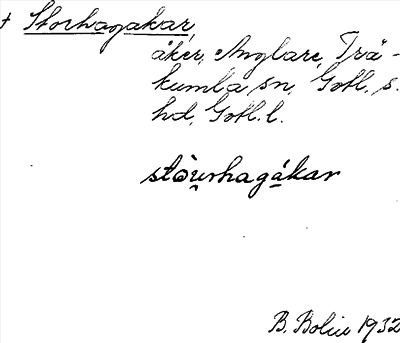 † Storhagakar,
åker, Anglare, Trä-
kumla sn, Gotl. s.
hd, Gotl. l.
stòu̯rhagákar
B. Bolin 1932